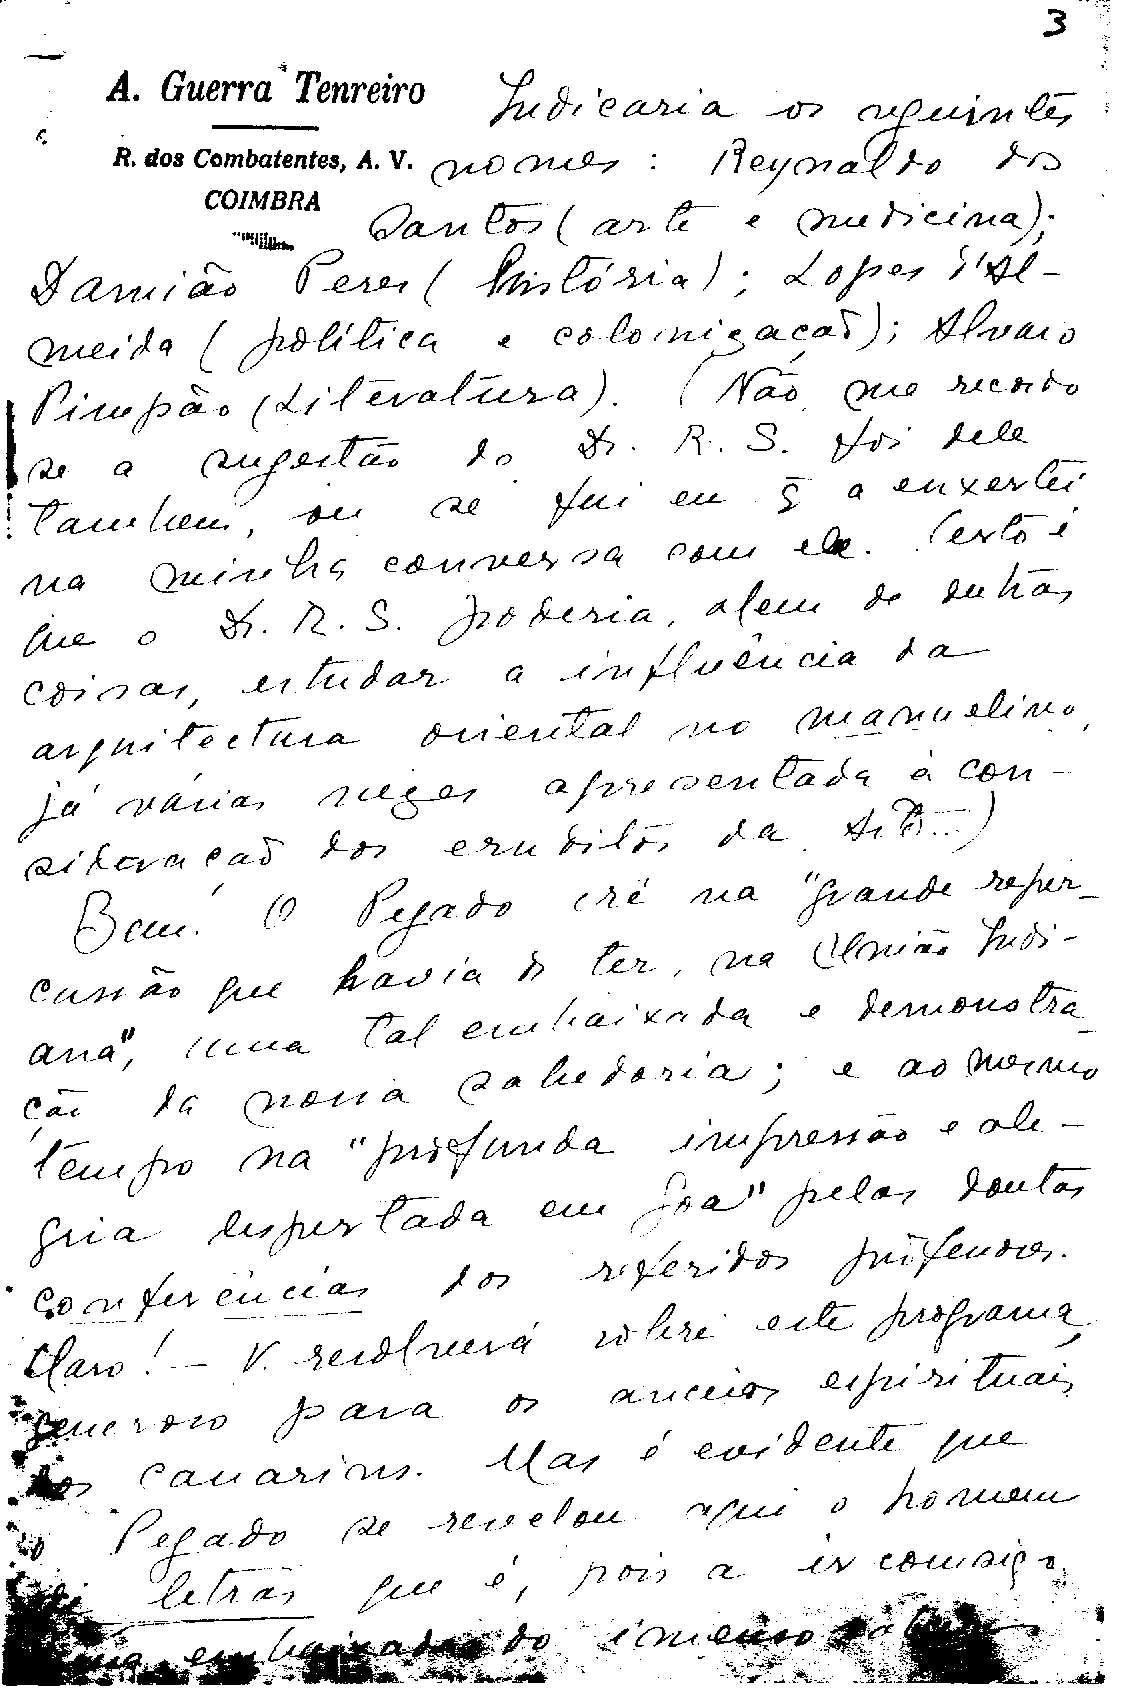 3
A. Guerra Tenreiro
R. dos Combatentes, A. V.
COIMBRA
Indicaria os seguintes
nomes: Reynaldo dos
Santos (arte e medicina);
Damião Peres (história); Lopes d'Al-
meida (política e colonização); Alvaro
Pimpão (Literatura). (Não me recordo
se a sugestão do Dr. R. S. foi dele
tambem, ou se fui eu q̃ a enxertei
na minha conversa com ele. Certo é
que o Dr. R. S. poderia, alem de outras
coisas, estudar a influência da
arquitectura oriental no manuelino,
já várias vezes apresentada à con-
sideração dos eruditos da
Bem! O Pegado crê na "grande reper-
cussão que havia de ter, na União Indi-
ana", uma tal embaixada e demonstra-
ção da nossa sabedoria; e ao mesmo
tempo na "profunda impressão e ale-
gria despertada em Goa" pelas doutas
conferências dos referidos professores.
Claro! — V. resolverá sobre este programa,
generoso para os anceios espirituais
dos canarins. Mas é evidente que
o Pegado se revelou aqui o homem
de letras que é, pois a ir comsigo
uma embaixada do imenso